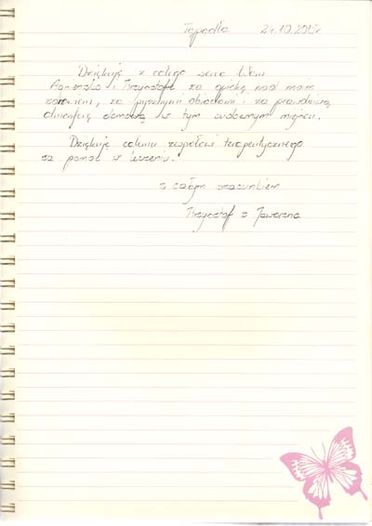 Tąpadła 24.10.2015r
Dziękuję z całego serca Wam
Agnieszko i Krzysztofie za opiekę nad moim
zdrowiem, za pysznymi obiadami i za prawdziwą
domową w tym cudownym miejscu.
Dziękuję całemu zespołowi terapeutycznego
za pomoc w leczeniu.
z całym szacunkiem
Krzysztof z Jaworzna